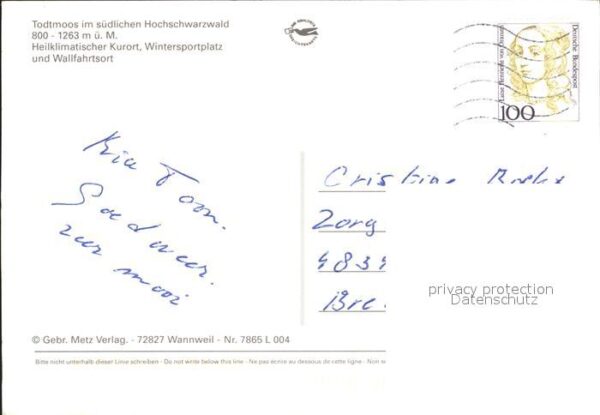 Todtmoos im südlichen Hochschwarzwald
800 - 1263 m ü. M.
Heilklimatischer Kurort, Wintersportplatz
und Wallfahrtsort
Deutsche Bundespost
100
Goed weer.
zeer mooi
Zorg
4834
Bre
privacy protection
Datenschutz
© Gebr. Metz Verlag. - 72827 Wannweil - Nr. 7865 L 004
Bitte nicht unterhalb dieser Linie schreiben - Do not write below this line - Ne pas écrire au dessous de cette ligne - Non